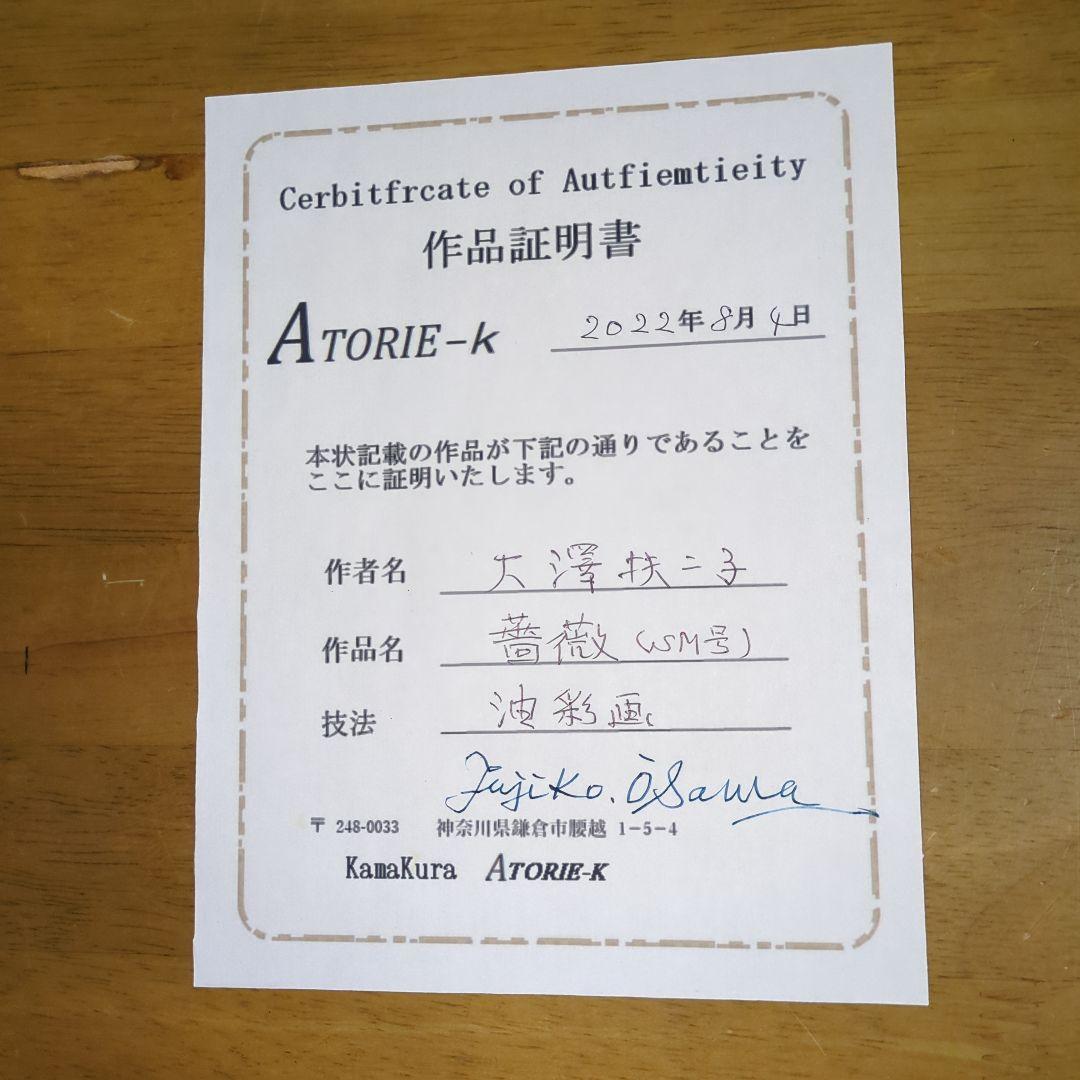 Cerbitfrcate of Autfiemtieity
作品証明書
ATORIE-k
2022年8月4日
本状記載の作品が下記の通りであることを
ここに証明いたします。
作者名 大澤扶二子
作品名 薔薇(WSM号)
技法 油彩画
Fujiko.Ōsawa
〒 248-0033 神奈川県鎌倉市腰越 1-5-4
KamaKura ATORIE-K